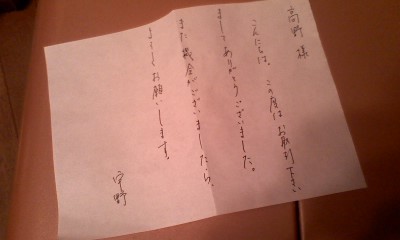 高野 様
こんにちは。この度はお取引下さい
ましてありがとうございました。
また機会がございましたら、
よろしくお願いします。
宇野